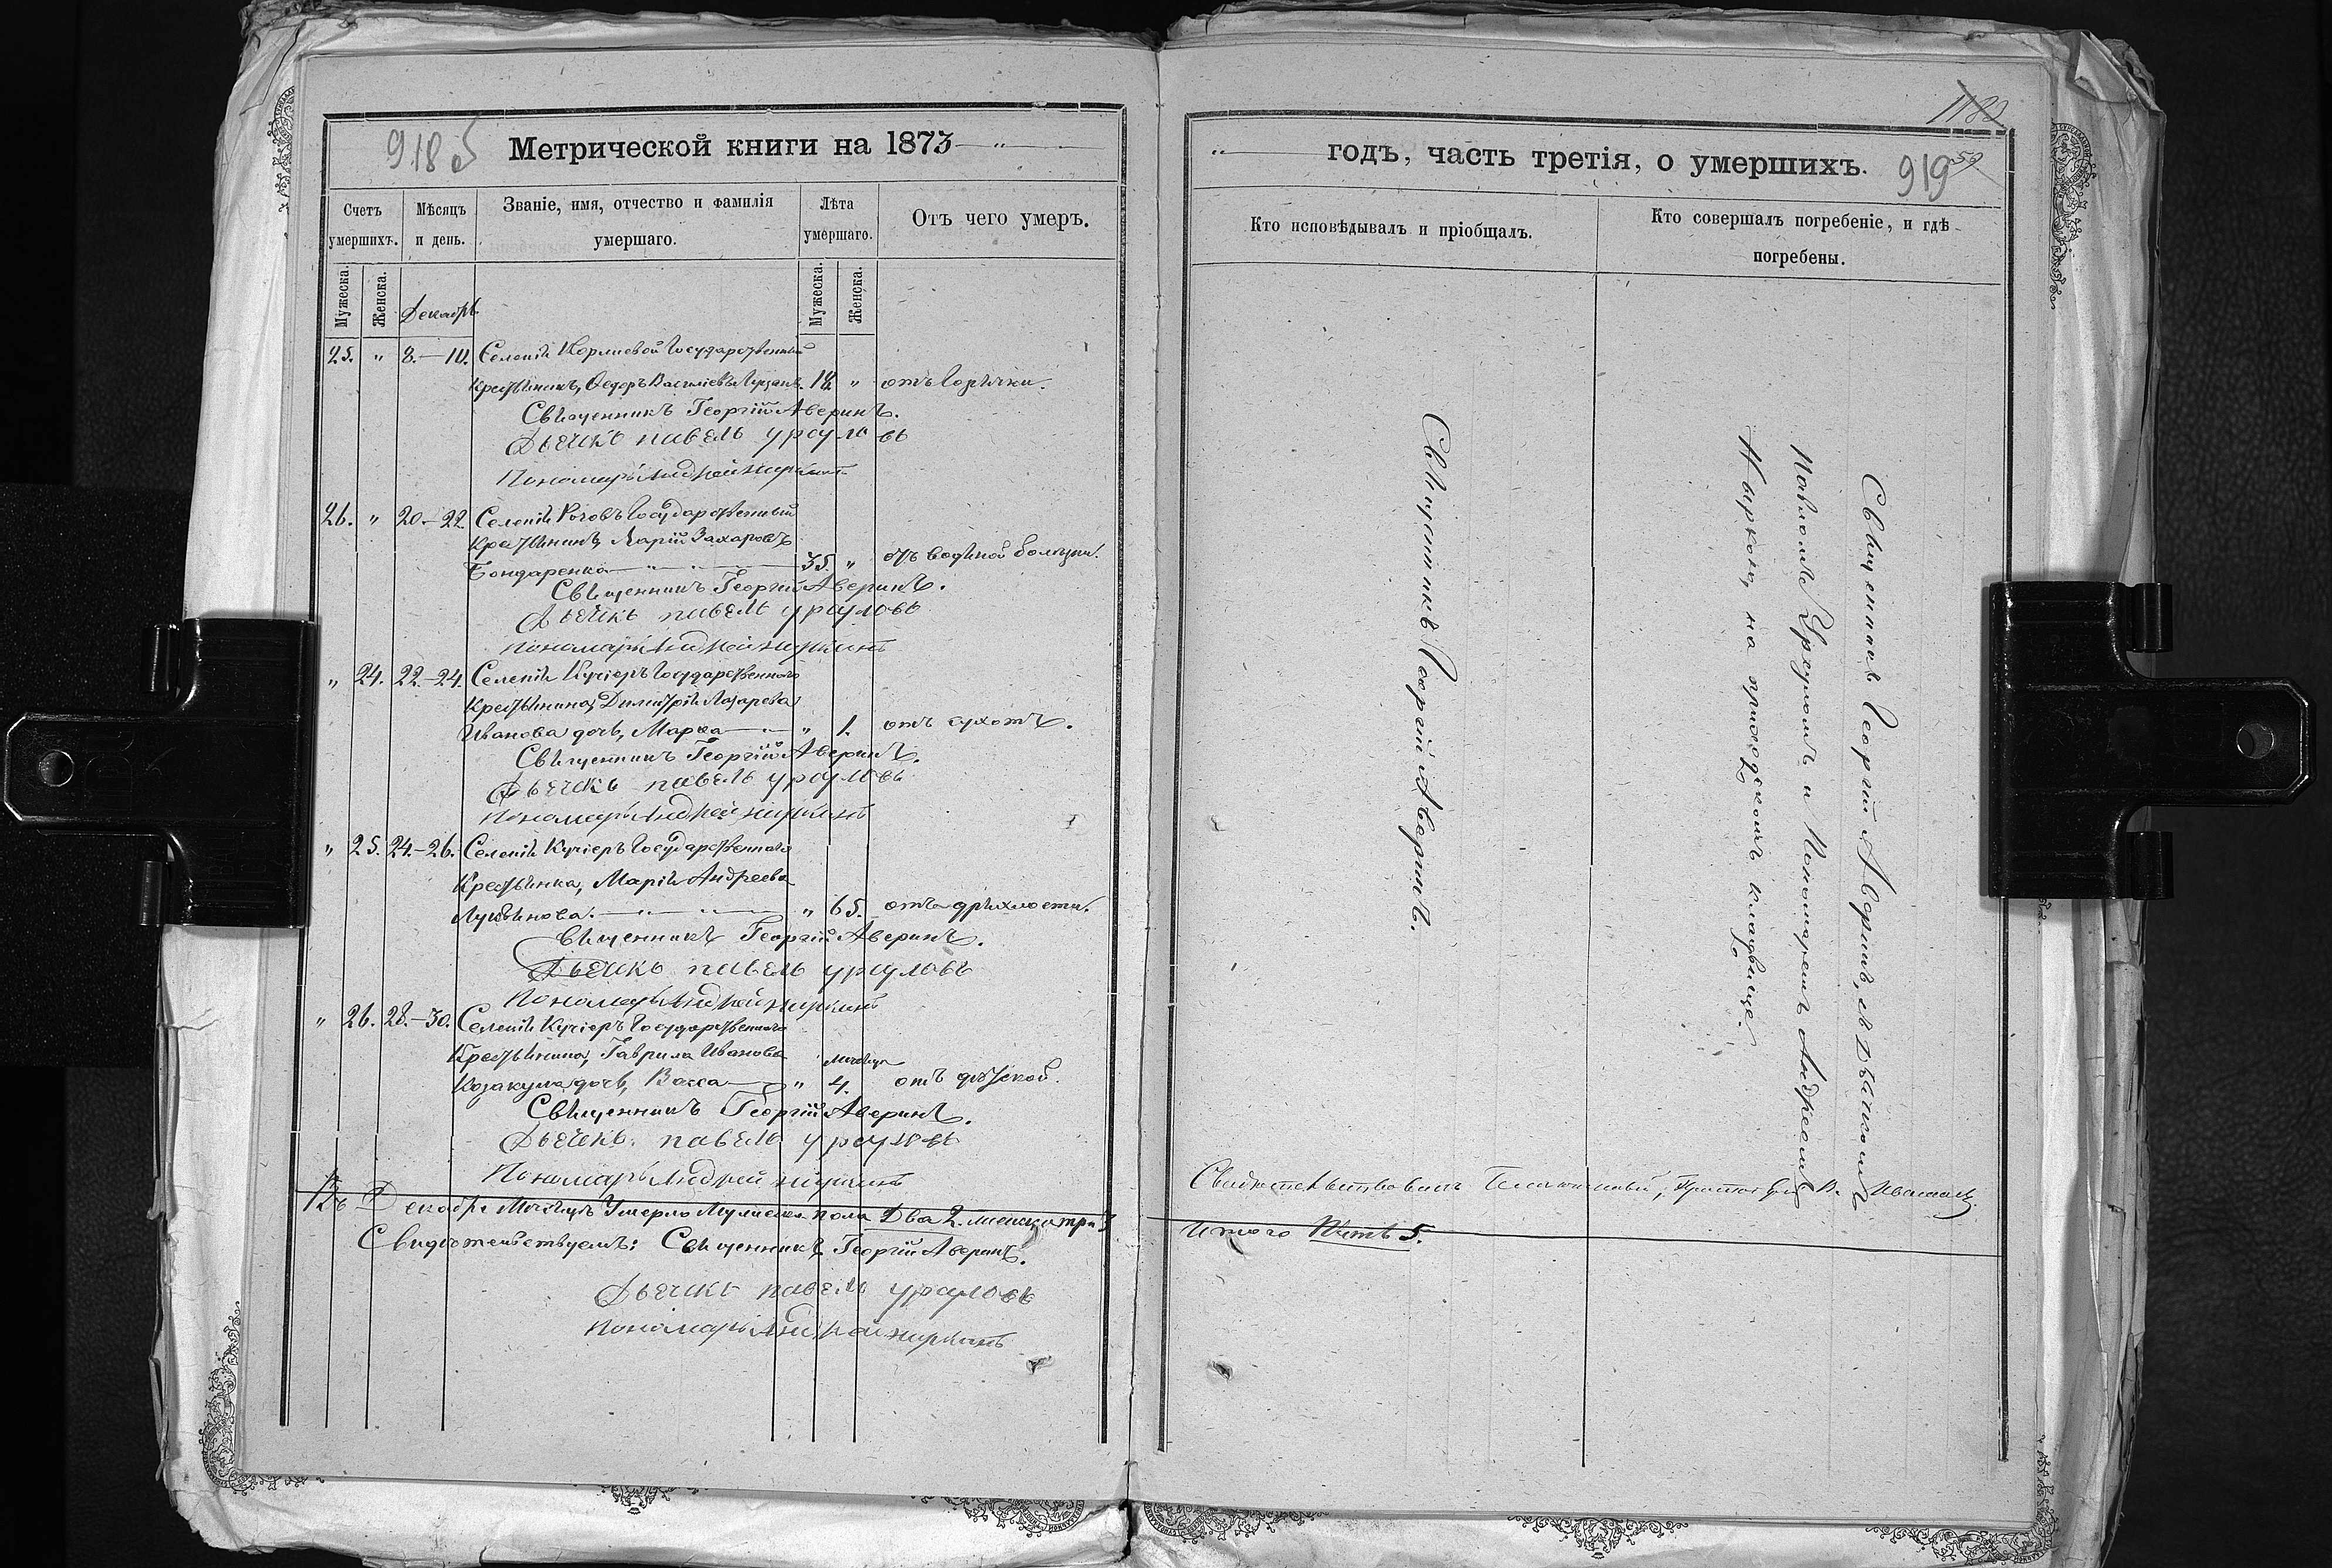 918 об
Метрической книги на 1873
Счетъ умершихъ.
Мѣсяцъ и день.
Званіе, имя, отчество и фамилія умершаго.
Лѣта умершаго.
Отъ чего умеръ.
Мужеска.
Женска.
Декабрь
Мужеска.
Женска.
25. " 8.—10. Селенія Государственный
Крестьянинъ, Ѳедоръ Васильевъ 18. " отъ горячки.
Священникъ Георгій Аверинъ.
Дьячкъ павелъ урсуловъ
Пономарь Андрей
26. " 20.—22. Селенія Государственный
Крестьянинъ, Захаровъ
Бондаренко 35. " отъ водяной болѣзни.
Священникъ Георгій Аверинъ.
Дьячкъ павелъ урсуловъ
Пономарь Андрей
" 24. 22.—24. Селенія Кугіеръ Государственнаго
Крестьянина, Димитрія Лазарева
Иванова дочь, Марѳа " 1. отъ сухотъ.
Священникъ Георгій Аверинъ.
Дьячкъ павелъ урсуловъ
Пономарь Андрей
" 25. 24.—26. Селенія Кугіеръ Государственнаго
Крестьянка, Марія Андреева
Лутвинова. " 65. отъ дряхлости.
Священникъ Георгій Аверинъ.
Дьячкъ павелъ урсуловъ
Пономарь Андрей
" 26. 28.—30. Селенія Кугіеръ Государственнаго
Крестьянина, Гаврила Иванова мѣсяца
Козакула дочь, Васса " 4. отъ дѣтской.
Священникъ Георгій Аверинъ.
Дьячкъ павелъ урсуловъ
Пономарь Андрей
Въ Декабрѣ Мѣсяцѣ Умерло Мужеска пола Два 2. женска три 3
Свидѣтельствуемъ: Священникъ Георгій Аверинъ.
Дьячкъ павелъ урсуловъ
Пономарь Андрей
1182
годъ, часть третія, о умершихъ.
919
59
Кто исповѣдывалъ и пріобщалъ.
Кто совершалъ погребеніе, и гдѣ погребены.
Священникъ Георгій Аверинъ.
Священникъ Георгій Аверинъ, съ Дьячкомъ
Павломъ Урсуломъ и Пономаремъ Андреемъ
на приходскомъ кладбище.
Свидетельствовалъ Благочинный, В.
Итого Пять 5.